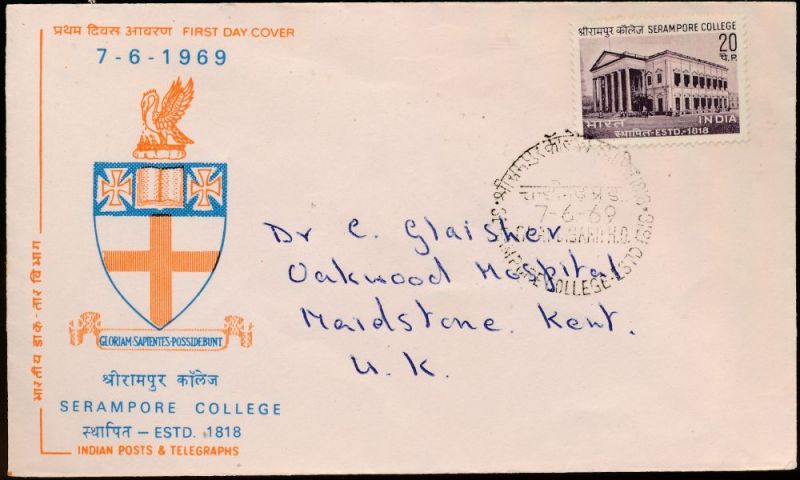 प्रथम दिवस आवरण FIRST DAY COVER
7-6-1969
GLORIAM·SAPIENTES·POSSIDEBUNT
श्रीरामपुर कॉलेज
SERAMPORE COLLEGE
स्थापित — ESTD. 1818
INDIAN POSTS & TELEGRAPHS
भारतीय डाक-तार विभाग
श्रीरामपुर कॉलेज SERAMPORE COLLEGE
20
पै.P.
भारत INDIA
स्थापित-ESTD.-1818
श्रीरामपुर कॉलेज
7-6-69
COLLEGE·ESTD 1818
Dr C. Glaisher
Oakwood Hospital
Maidstone. Kent.
U.K.